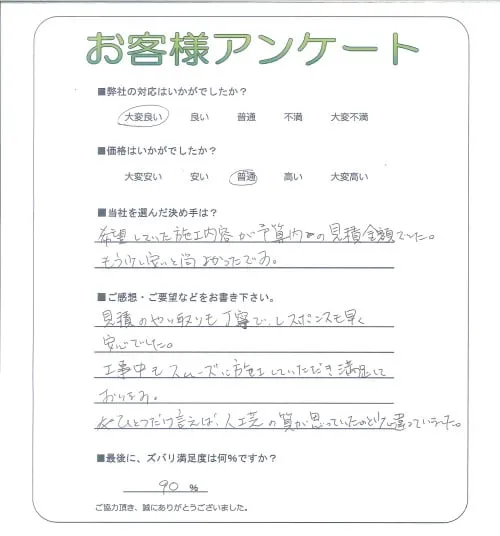 お客様アンケート
■弊社の対応はいかがでしたか？
大変良い 良い 普通 不満 大変不満
■価格はいかがでしたか？
大変安い 安い 普通 高い 大変高い
■当社を選んだ決め手は？
希望していた施工内容が予算内の見積金額でした。
もう少し安いと尚よかったです。
■ご感想・ご要望などをお書き下さい。
見積のやり取りも丁寧で、レスポンスも早く
安心でした。
工事中もスムーズに施工していただき満足して
おります。
ひとつだけ言えば、人工芝の質が思っていたのと少し違っていました。
■最後に、ズバリ満足度は何%ですか？
90 %
ご協力頂き、誠にありがとうございました。